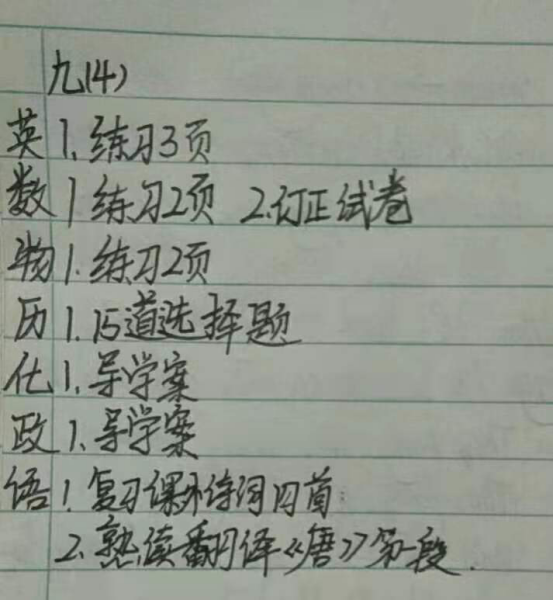 九(4)
英 1. 练习3页
数 1 练习2页 2.订正试卷
物 1. 练习2页
历 1. 15道选择题
化 1. 导学案
政 1. 导学案
语 1. 复习课外诗词四首
2. 熟读翻译《唐》第一段.